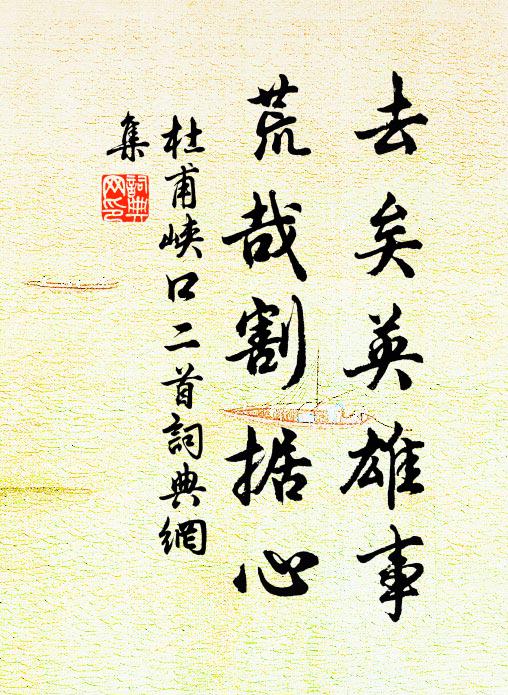 去矣英雄事
荒哉割据心
杜甫峡口二首詞典網
集
詞典
网印